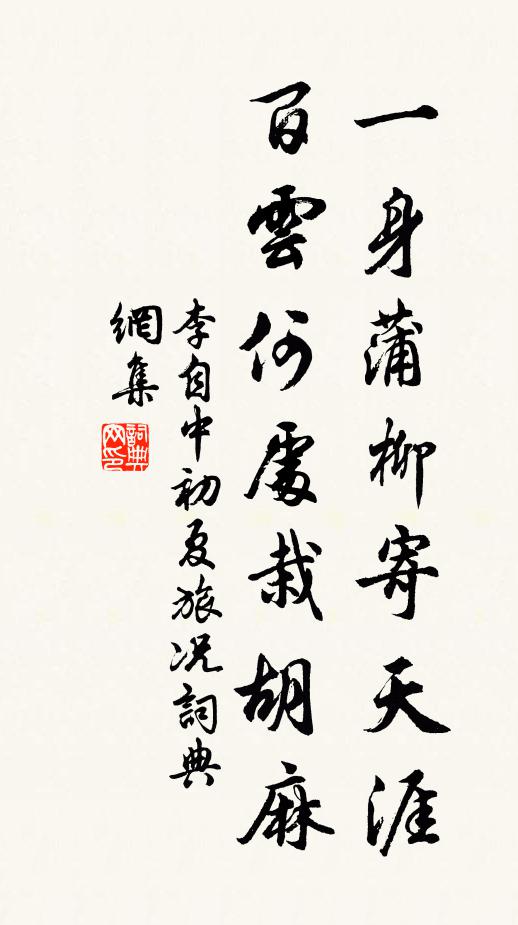 一身蒲柳寄天涯
百雲何處栽胡麻
李自中初夏旅况詞典
網集
詞典
网印